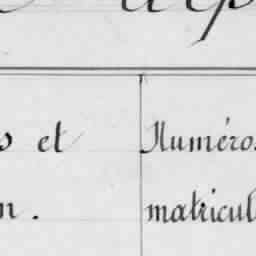 s et
Numéros
n.
matricul